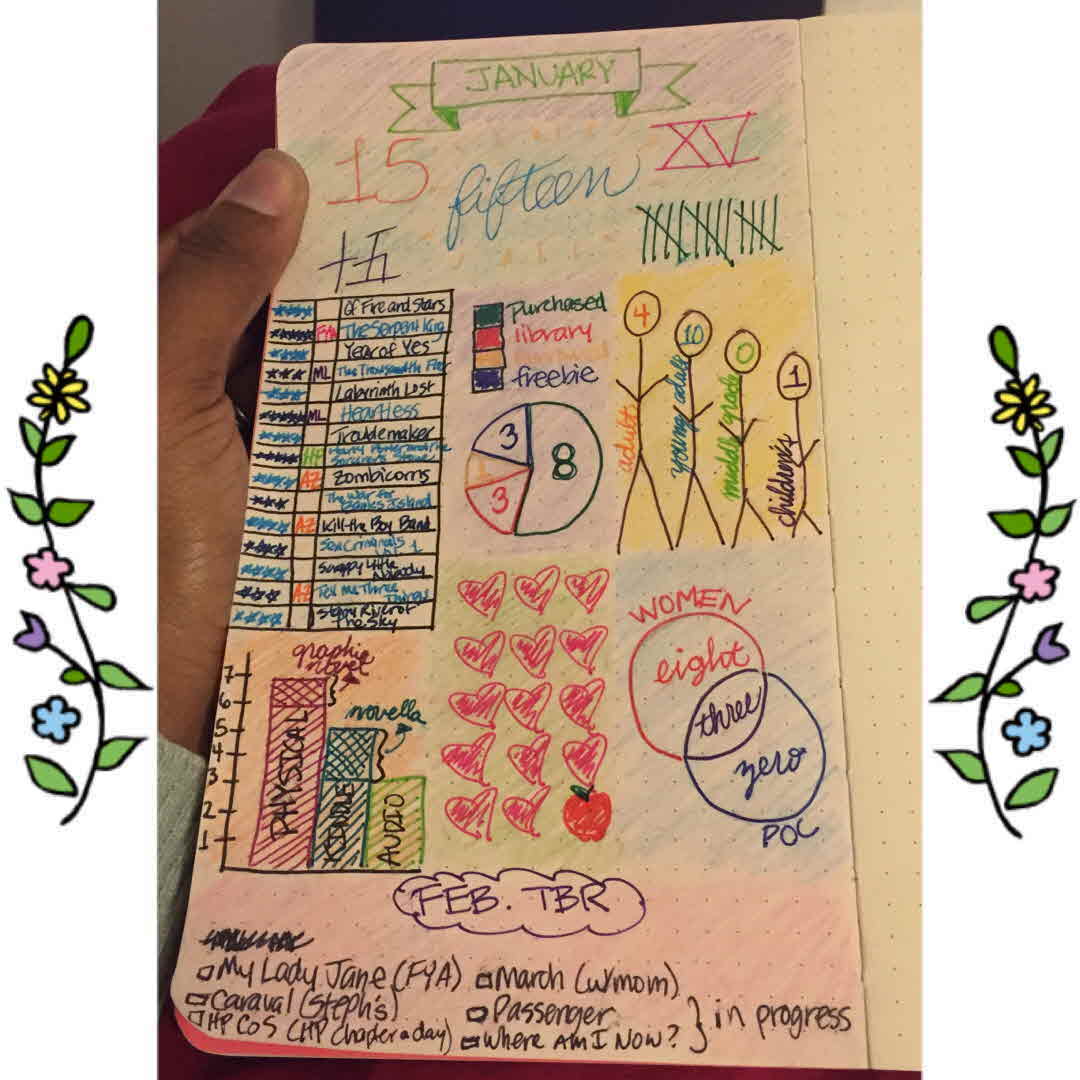 JANUARY
15 fifteen XV
十五
Of Fire and Stars
FYA The Serpent King
Year of Yes
ML The Thousandth Floor
Labyrinth Lost
ML Heartless
Troublemaker
HP Harry Potter and the Sorcerer's Stone
AZ Zombicorns
The War for Banks Island
AZ Kill the Boy Band
Sex Criminals Vol 1
Scrappy Little Nobody
AZ Tell Me Three Things
Sleepy River of The Sky
purchased
library
freebie
3
8
1
3
4
10
0
1
adult
young adult
middle grade
children's
graphic
novel
novella
7
6
5
4
3
2
1
PHYSICAL
KINDLE
AUDIO
WOMEN
eight
three
zero
POC
FEB. TBR
My Lady Jane (FYA)
Caraval (Steph's)
HP CoS (HP Chapter a day)
March (w/mom)
Passenger
Where Am I Now?
} in progress